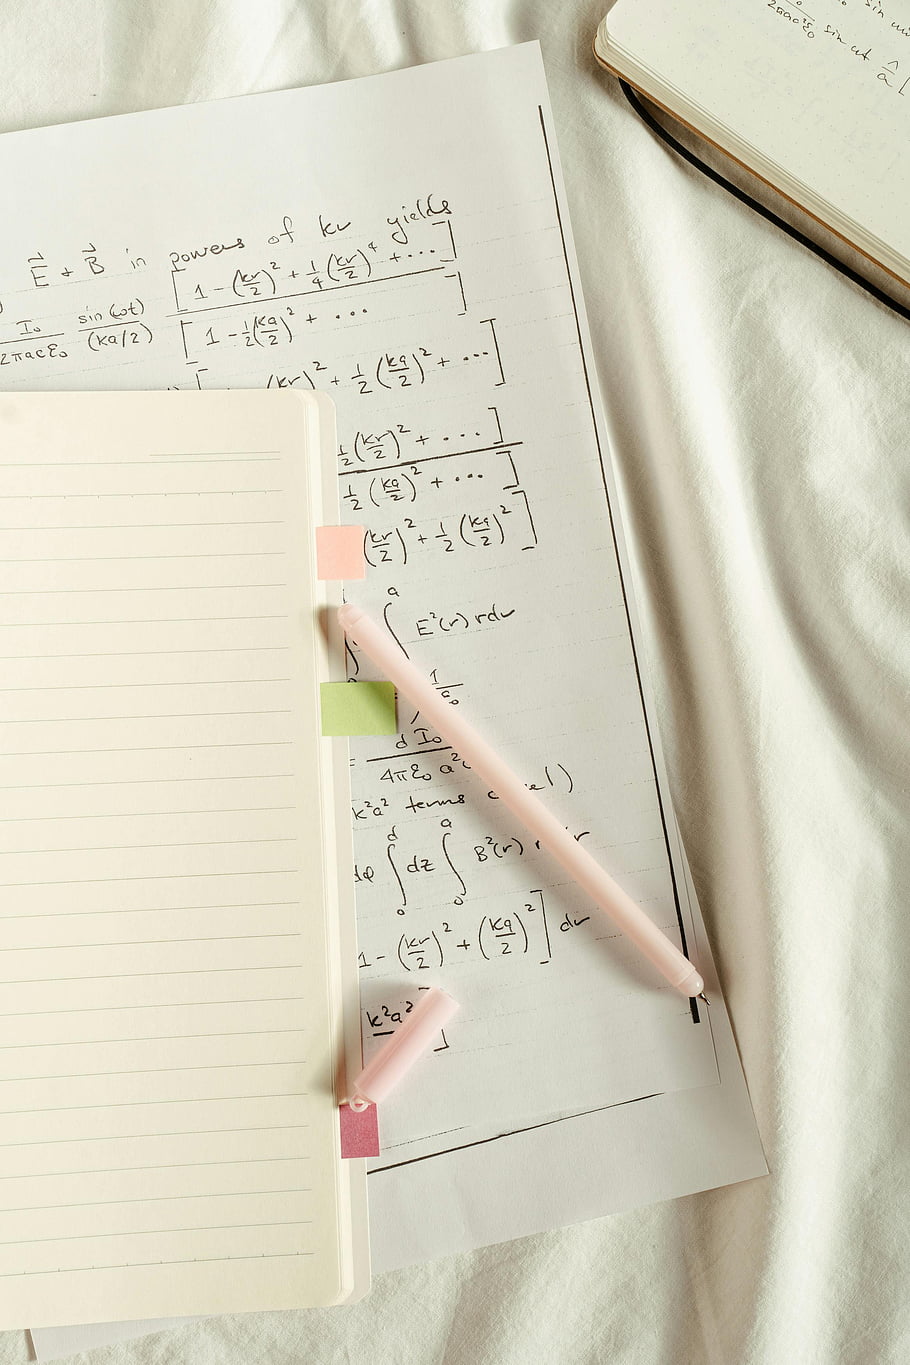 E⃗ + B⃗ in powers of kr yields
I₀/2πacε₀ sin(ωt)/(ka/2) [1 - (kr/2)² + 1/4(kr/2)⁴ + ...]
[1 - 1/2(ka/2)² + ...]
(kr)² + 1/2(ka/2)² + ...]
1/2(kr/2)² + ...]
1/2(ka/2)² + ...]
(kr/2)² + 1/2(ka/2)²]
∫ ∫ᵃ E²(r) rdr
1/ε₀
= d I₀/4πε₀ a²
k²a² terms
dφ ∫₀ᵈ dz ∫₀ᵃ B²(r)
1 - (kr/2)² + (ka/2)²] dr
k²a² ]
sin
2πacε₀ sin ωt 1/a [